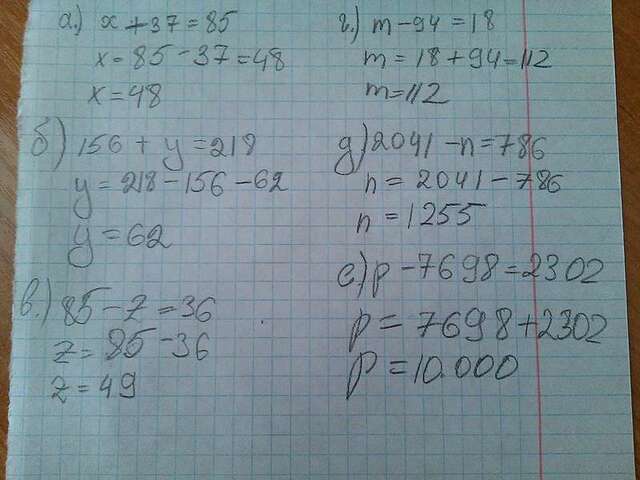 а.) x + 37 = 85
x = 85 - 37 = 48
x = 48
б) 156 + y = 218
y = 218 - 156 - 62
y = 62
в.) 85 - z = 36
z = 85 - 36
z = 49
г.) m - 94 = 18
m = 18 + 94 = 112
m = 112
д) 2041 - n = 786
n = 2041 - 786
n = 1255
е) p - 7698 = 2302
p = 7698 + 2302
p = 10.000